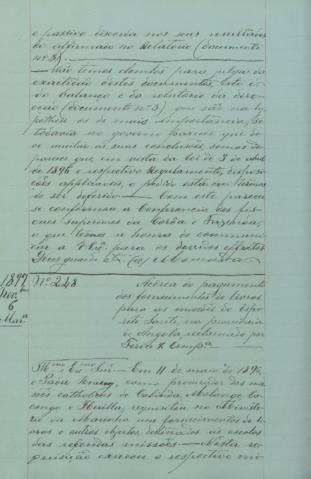 e passivo discorda nos seus resultados
do affirmado no Relatorio (documento
nº 3).
— Não temos elementos para julgar da
exactidão destes documentos, isto é:
do balanço e do relatorio da dire-
cção (documento nº 3) que são na hy-
pothese os de mais importancia, se
todavia ao governo parecer que de-
ve acceitar as suas conclusões, somos de
parecer que em vista da lei de 3 de abril
de 1896 e respectivo Regulamento, disposi-
ções applicaveis, o pedido está em termos
de ser deferido — Com este parecer
se conformou a Conferencia dos fis-
caes superiores da Corôa e Fazenda,
o que temos a honra de communi-
car a V. Exª para os devidos effeitos
Deus guarde etc (a)
1897
Novº
6
Marª
Nº 248
Ácerca do pagamento
dos fornecimentos de livros
para as missões do Espi-
rito Santo, na provincia
de Angola, reclamado por
Ferin & Compª
Illmo e Exmo Snr — Em 11 de maio de 1896,
o Padre, como procurador das mis-
sões catholicas de Cabinda, Malange, Ca-
congo e Huilla, requisitou no Ministe-
rio da Marinha uns fornecimentos de li-
vros e outros objectos, destinados ás escolas
das referidas missões. — Nesta re-
quisição exarou o respectivo mi-